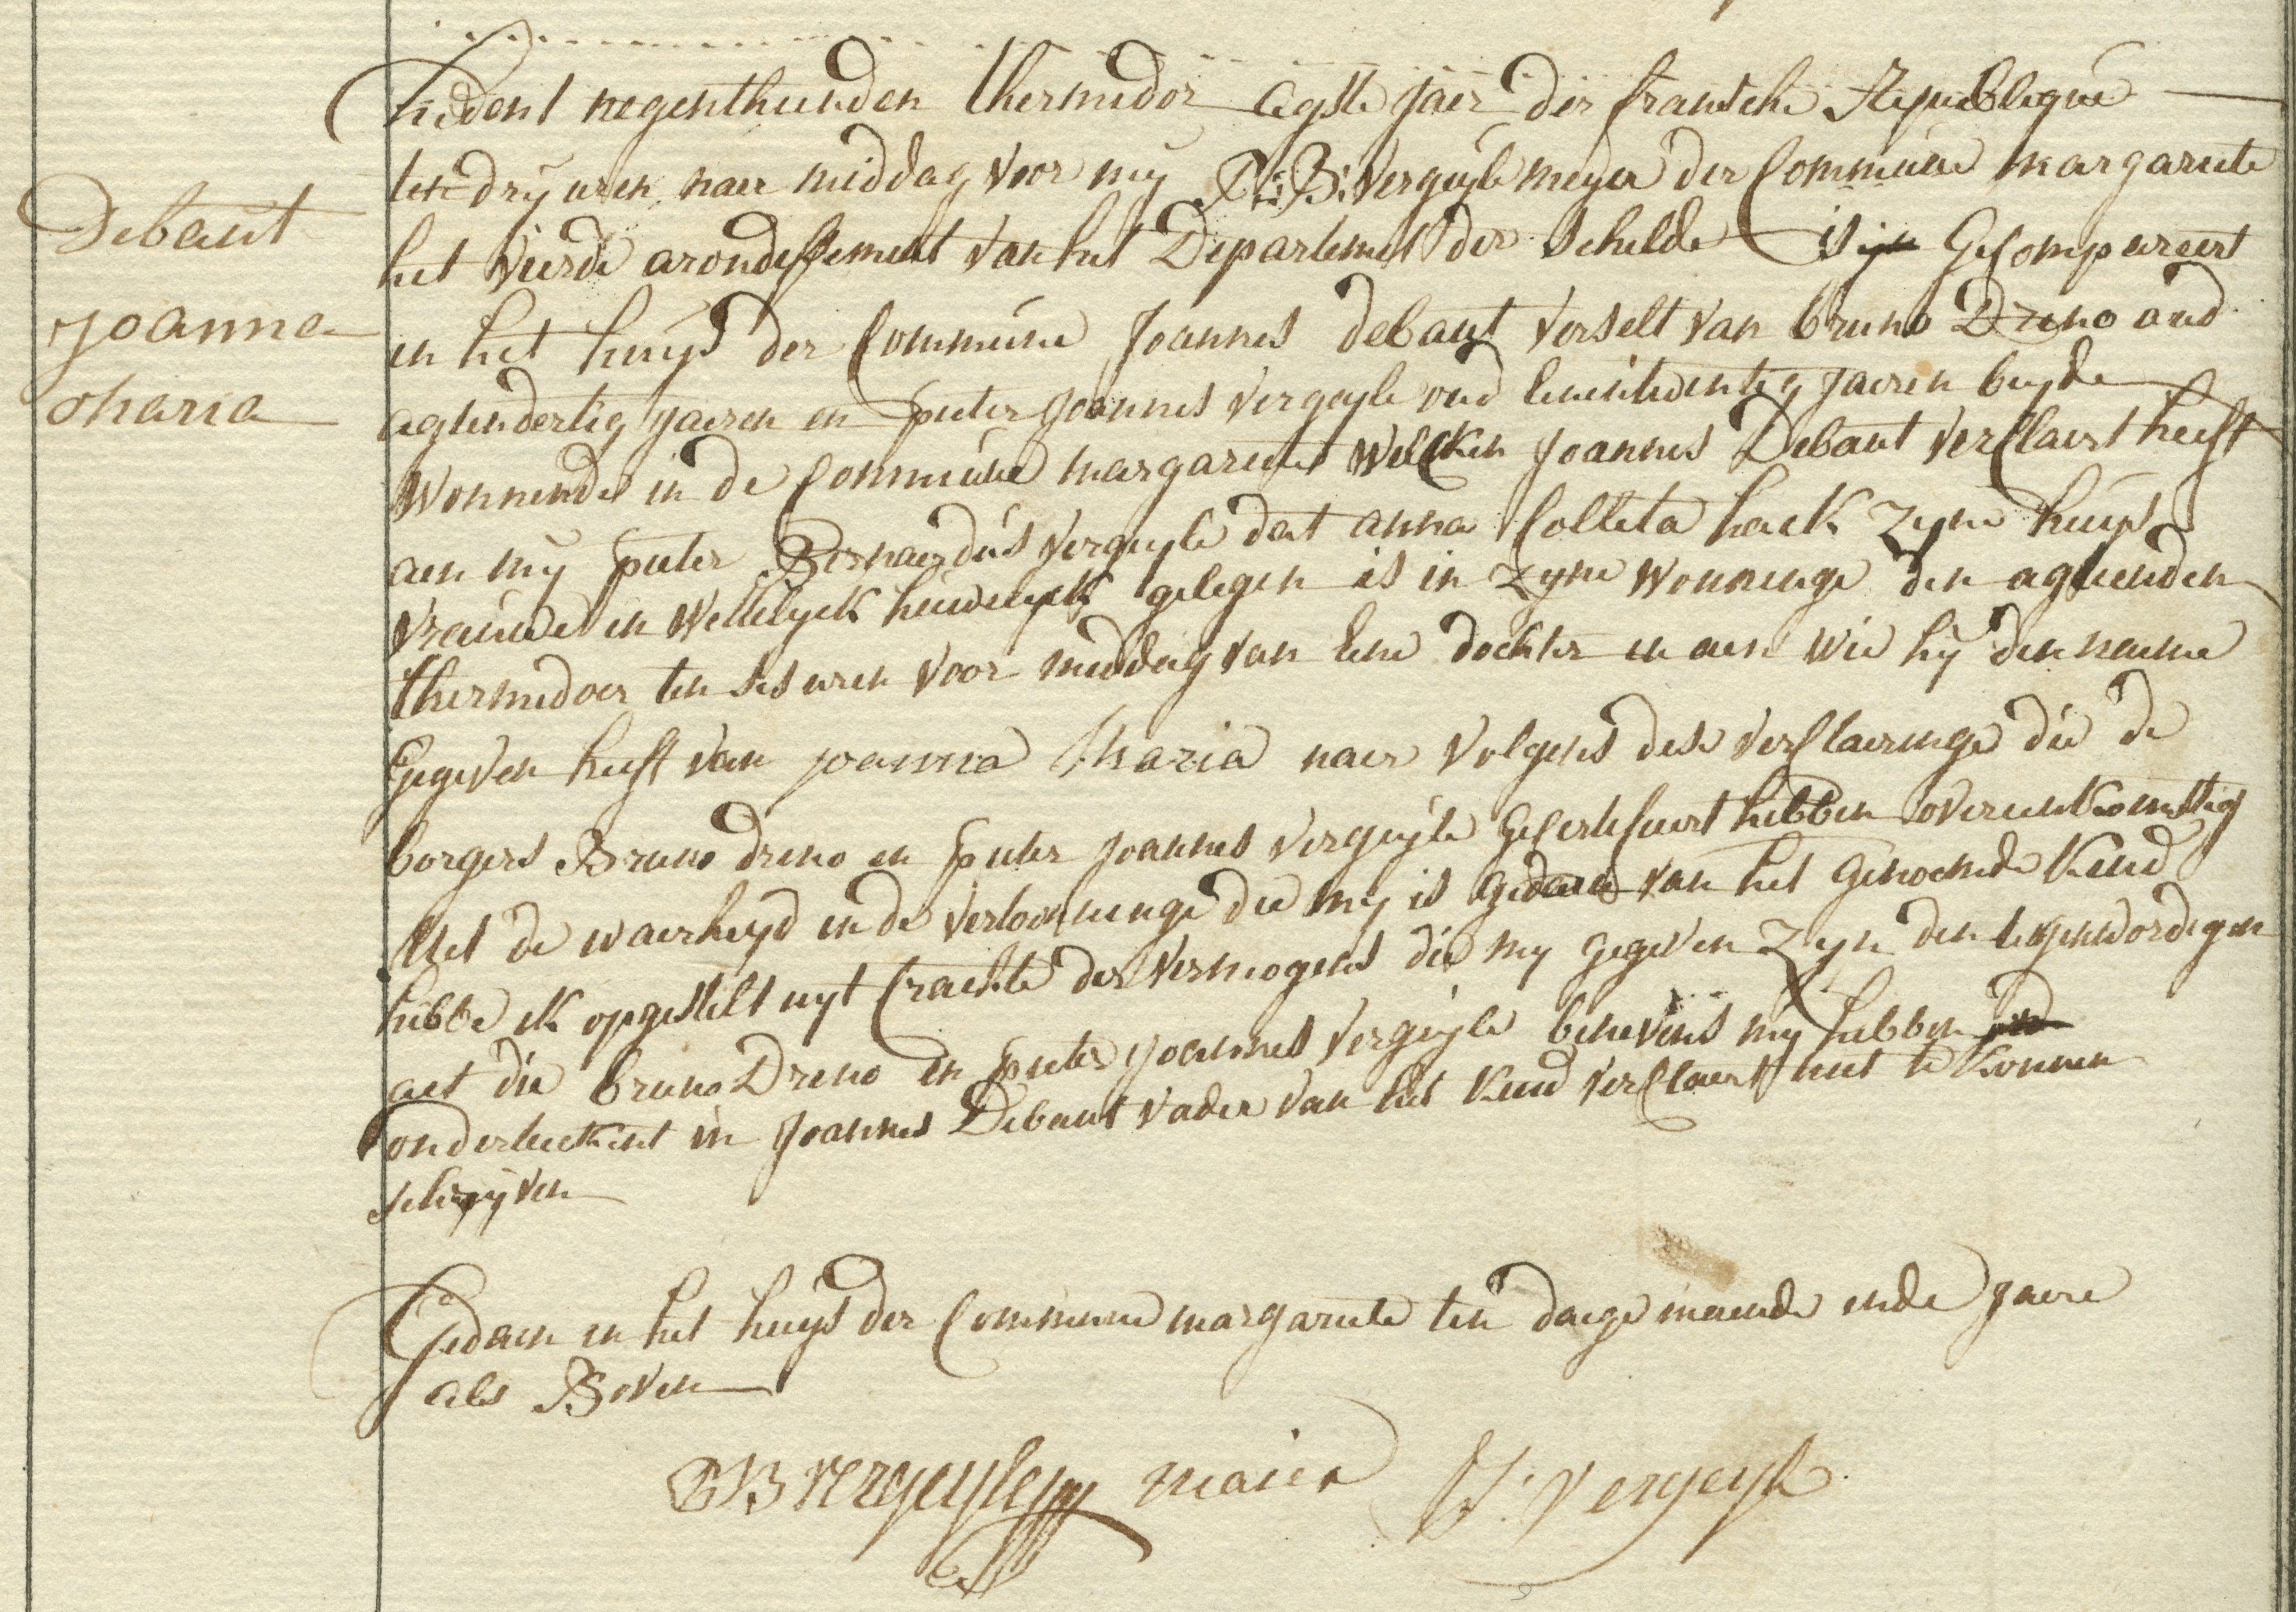 Debaut
joanna
Maria
Heden negenthienden thermidor agste jaer der fransche Republique
ten dry uren naer middag voor my P: B: Vergeyle meyer der Commune margariete
het vierde arondissement van het Departement der schelde is Gecompareert
in het huys der Commune Joannes debaut verselt van bruno Dreno oud
agtendertig jaeren en pieter joannes vergeyle oud eenentwentig jaeren beyde
Wonnende in de Commune margariete Welcken joannes Debaut verclaert heeft
aen my pieter Bernaerdus vergeyle dat anna Colleta hack zyne huys
vrauwe in Wettelyck huwelyck gelegen is in zyne wonninge den agtienden
thermidoer ten ses uren voor middag van eene dochter en aen wie hy den naeme
Gegeven heeft van joanna Maria naer volgens dese verclaeringe die de
borgers Bruno dreno en pieter joannes vergeyle Gecertefiert hebben overeenkomstig
Met de waerheyd en de vertooninge die my is gedaen van het Genoemde kind
hebbe ik opgestelt uyt crachte der vermogens die my gegeven zyn den tegenwordigen
act die bruno Dreno en pieter joannes vergeyle benevens my hebben
onderteekent en joannes Debaut vader van het kind verclaert niet te konnen
schryven
Gedaen in het huys der Commune margariete ten daege maende ende jaere
als Boven
PB vergeyle maier P J vergeyle